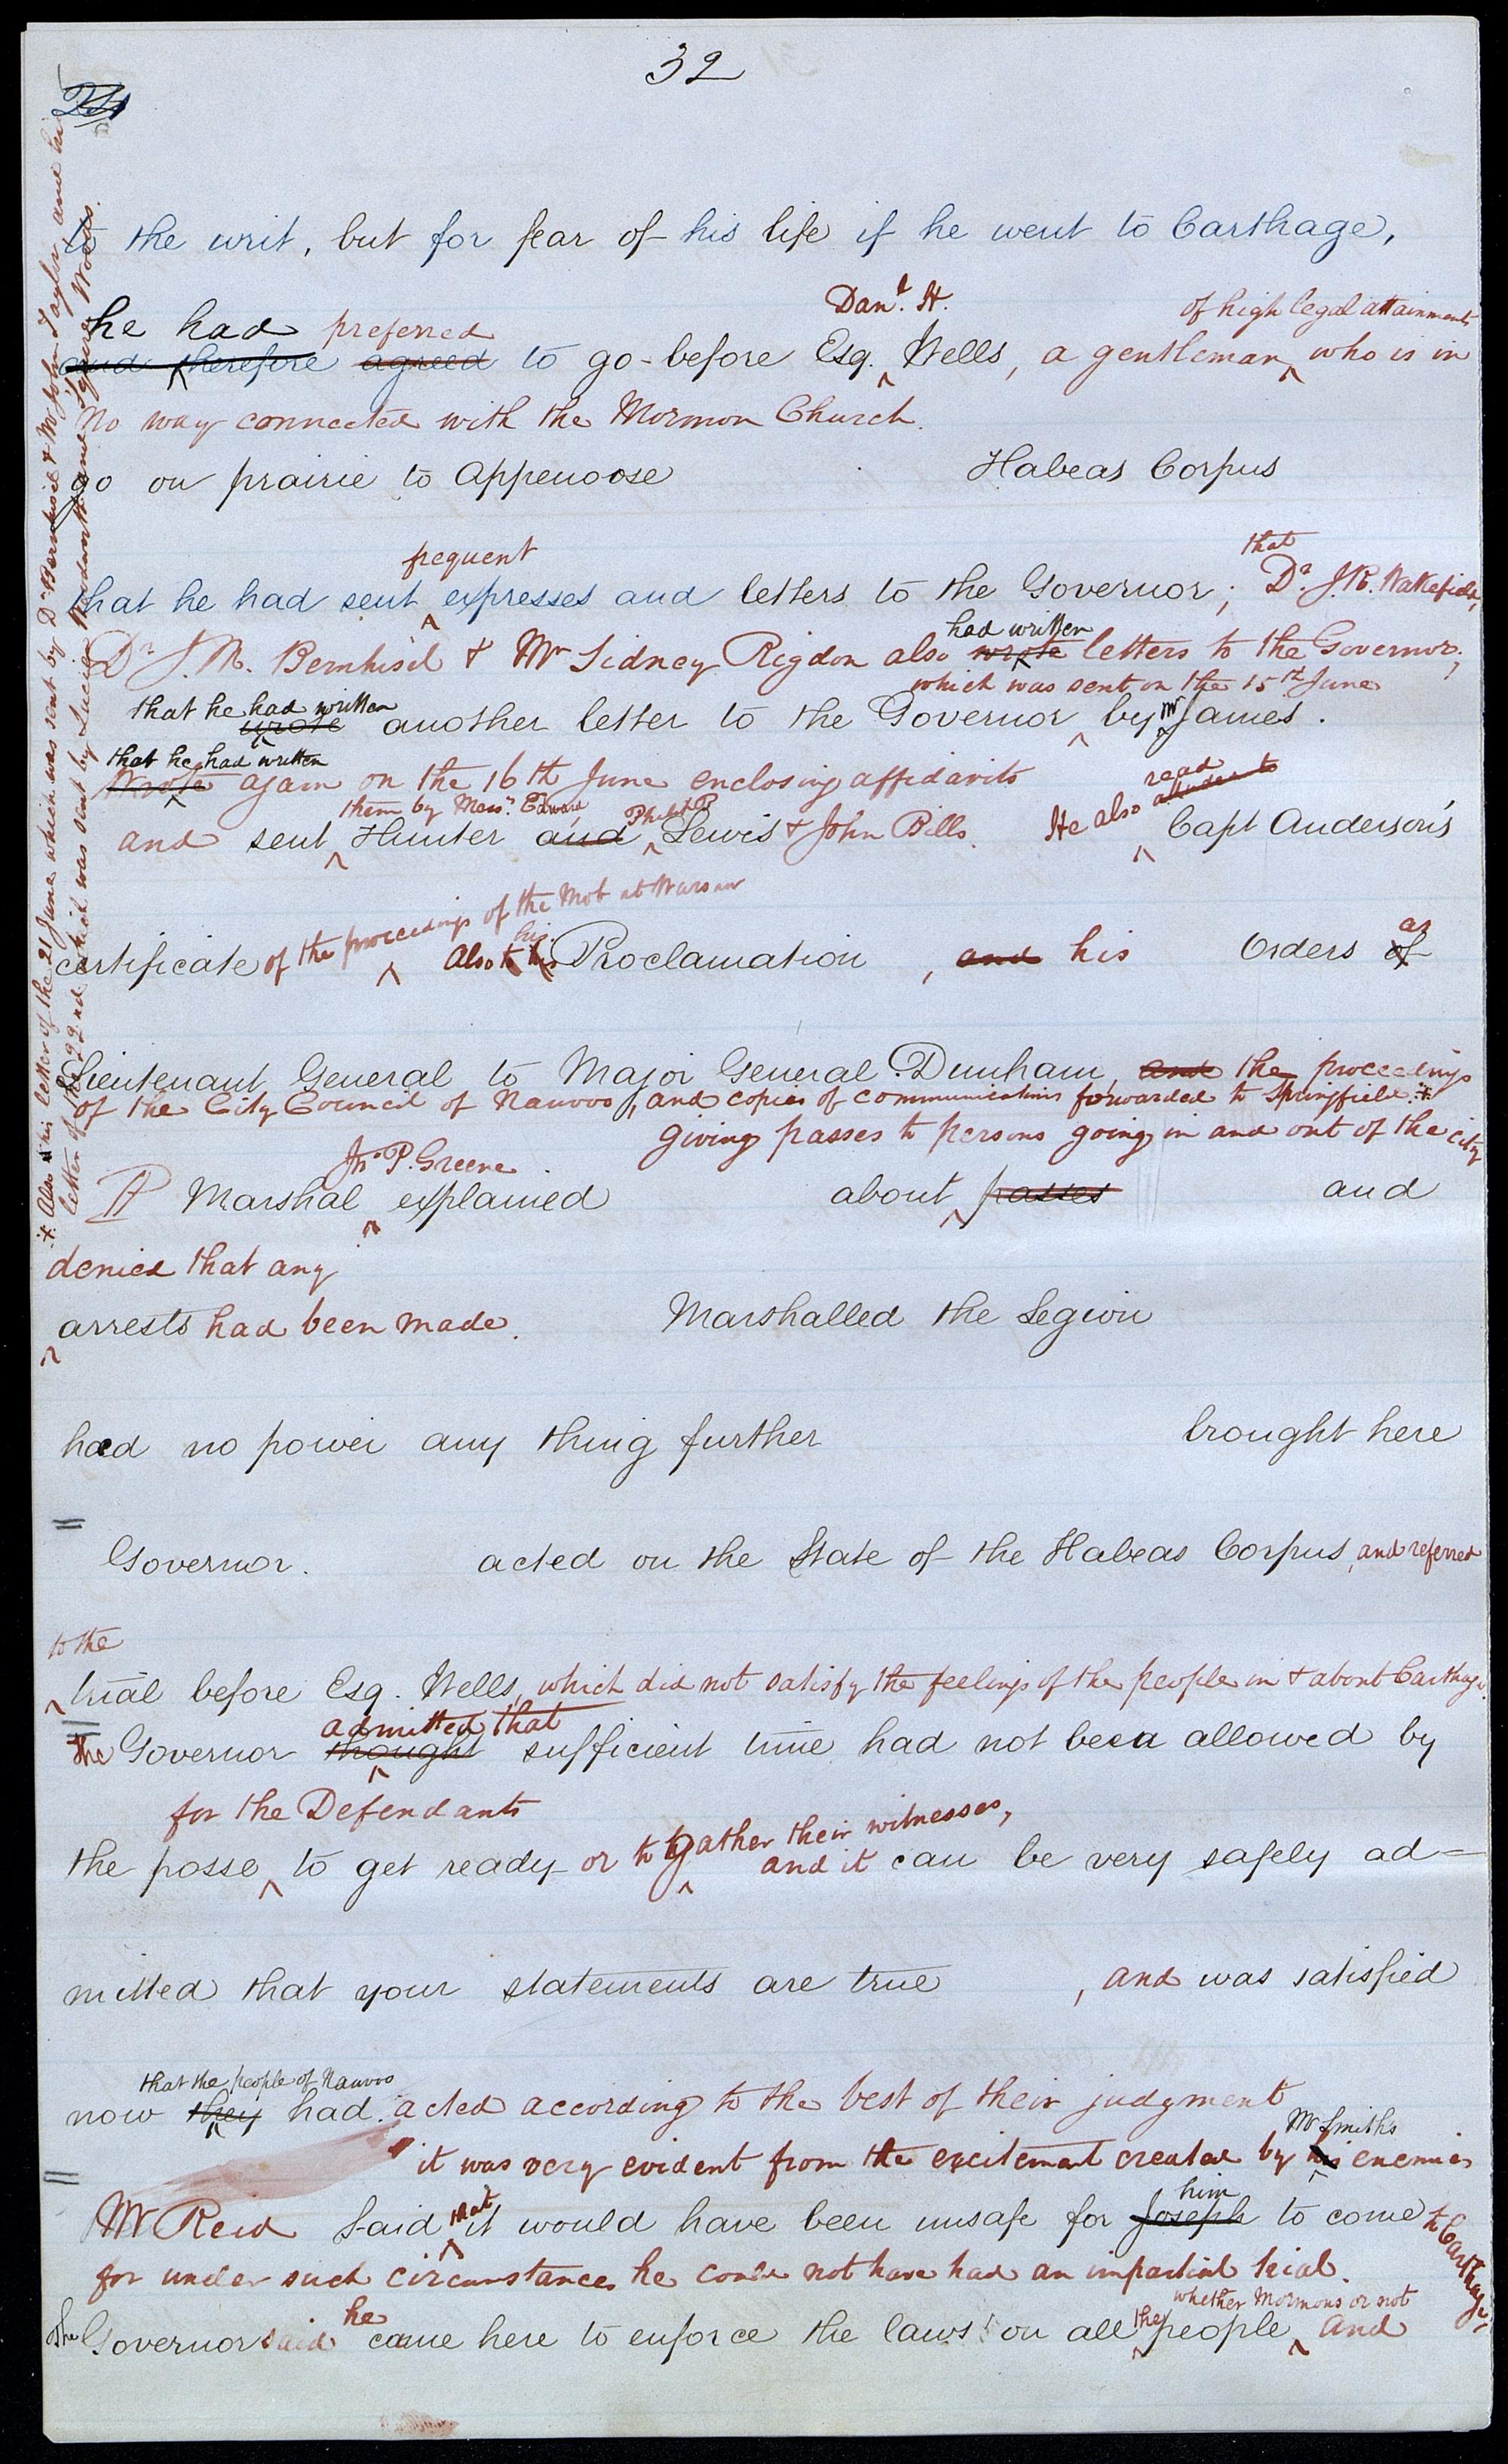 32
to the writ, but for fear of his life if he went to Carthage,
Danl. H.
of high legal attainments
he had preferred
and therefore agreed to go before Esq. Wells, a gentleman who is in
no way connected with the Mormon Church.
go on prairie to Appenoose Habeas Corpus
frequent
that
that he had sent expresses and letters to the Governor; Dr. J.R. Wakefield,
had written
Dr J. M. Bernhisel & Mr Sidney Rigdon also wrote letters to the Governor;
which was sent on the 15th June
that he had written
wrote another letter to the Governor by Mr James.
that he had written
Wrote again on the 16th June enclosing affidavits
them by Messrs. Edward Philip B
read
and sent Hunter and Lewis & John Bills. He also alludes to Capt Anderson's
of the proceedings of the Mob at Warsaw
his
as
certificate Also to his Proclamation, and his Orders of
Lieutenant General to Major General Dunham, and the proceedings
of the City Council of Nauvoo, and copies of communications forwarded to Springfield. *
giving passes to persons going in and out of the city
Jno P. Greene
Marshal explained about passes and
denied that any
arrests had been made. Marshalled the Legion
had no power any thing further brought here
Governor. acted on the State of the Habeas Corpus, and referred
to the
trial before Esq. Wells, which did not satisfy the feelings of the people in & about Carthage.
admitted that
The Governor thought sufficient time had not been allowed by
for the Defendants
the posse to get ready or to gather their witnesses, and it can be very safely ad=
mitted that your statements are true, and was satisfied
that the people of Nauvoo
now they had acted according to the best of their judgment
Mr Smith's
it was very evident from the excitement created by his enemies
that
him
Mr Reid Said it would have been unsafe for Joseph to come to Carthage,
for under such circumstances he could not have had an impartial trial.
he
the
whether Mormons or not
The Governor said came here to enforce the laws on all people, and
* Also his letter of the 21 June which was sent by Dr Bernhisel & Mr John Taylor and his
letter of the 22nd which was sent by Lucien Woodworth and Squire Woods.